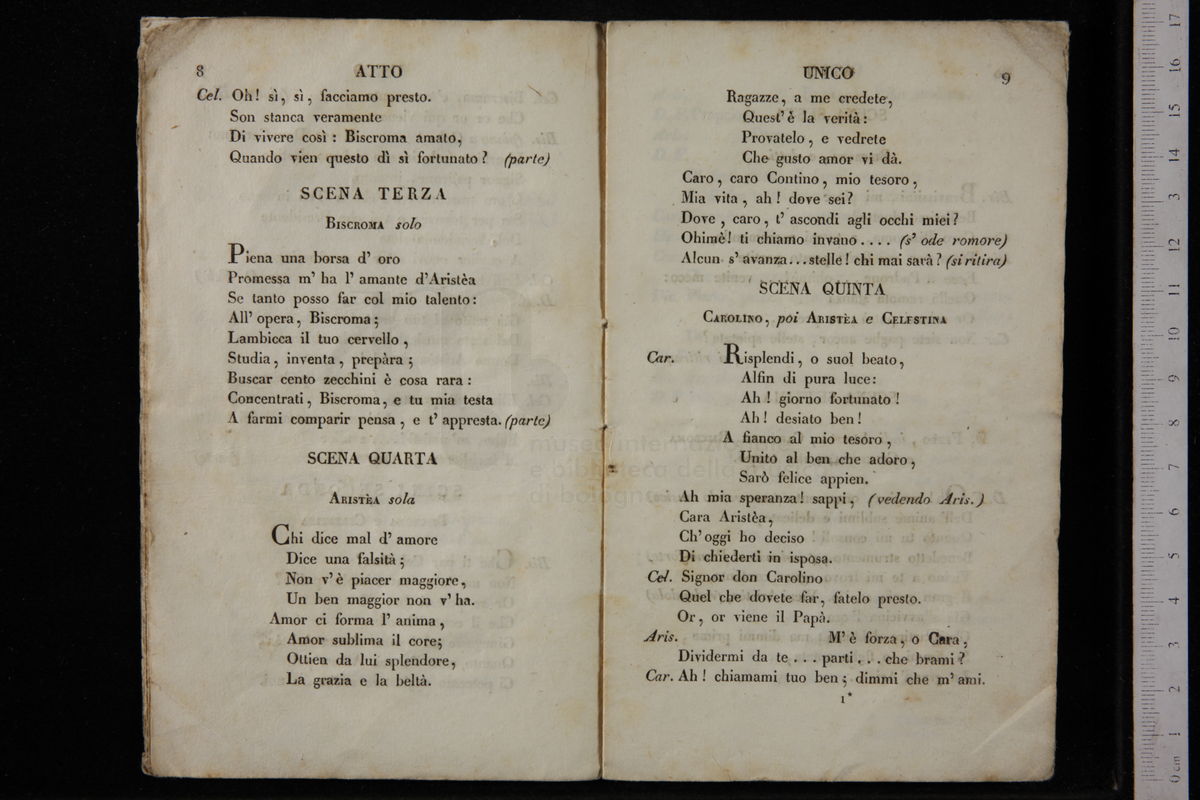 8 ATTO
Cel. Oh! sì, sì, facciamo presto.
Son stanca veramente
Di vivere così : Biscroma amato,
Quando vien questo dì sì fortunato? (parte)
SCENA TERZA
BISCROMA solo
Piena una borsa d' oro
Promessa m' ha l' amante d'Aristèa
Se tanto posso far col mio talento:
All' opera, Biscroma;
Lambicca il tuo cervello,
Studia, inventa, prepàra;
Buscar cento zecchini è cosa rara:
Concentrati, Biscroma, e tu mia testa
A farmi comparir pensa, e t' appresta. (parte)
SCENA QUARTA
ARISTÈA sola
Chi dice mal d' amore
Dice una falsità;
Non v' è piacer maggiore,
Un ben maggior non v' ha.
Amor ci forma l' anima,
Amor sublima il core;
Ottien da lui splendore,
La grazia e la beltà.
UNICO 9
Ragazze, a me credete,
Quest' è la verità:
Provatelo, e vedrete
Che gusto amor vi dà.
Caro, caro Contino, mio tesoro,
Mia vita, ah! dove sei?
Dove, caro, t' ascondi agli occhi miei?
Ohimè! ti chiamo invano.... (s' ode romore)
Alcun s' avanza...stelle! chi mai sarà? (si ritira)
SCENA QUINTA
CAROLINO, poi ARISTÈA e CELESTINA
Car. Risplendi, o suol beato,
Alfin di pura luce:
Ah! giorno fortunato!
Ah! desiato ben!
A fianco al mio tesoro,
Unito al ben che adoro,
Sarò felice appien.
Ah mia speranza! sappi, (vedendo Aris.)
Cara Aristèa,
Ch' oggi ho deciso
Di chiederti in isposa.
Cel. Signor don Carolino
Quel che dovete far, fatelo presto.
Or, or viene il Papà.
Aris. M' è forza, o Cara,
Dividermi da te... parti... che brami?
Car. Ah! chiamami tuo ben; dimmi che m' ami.
1*